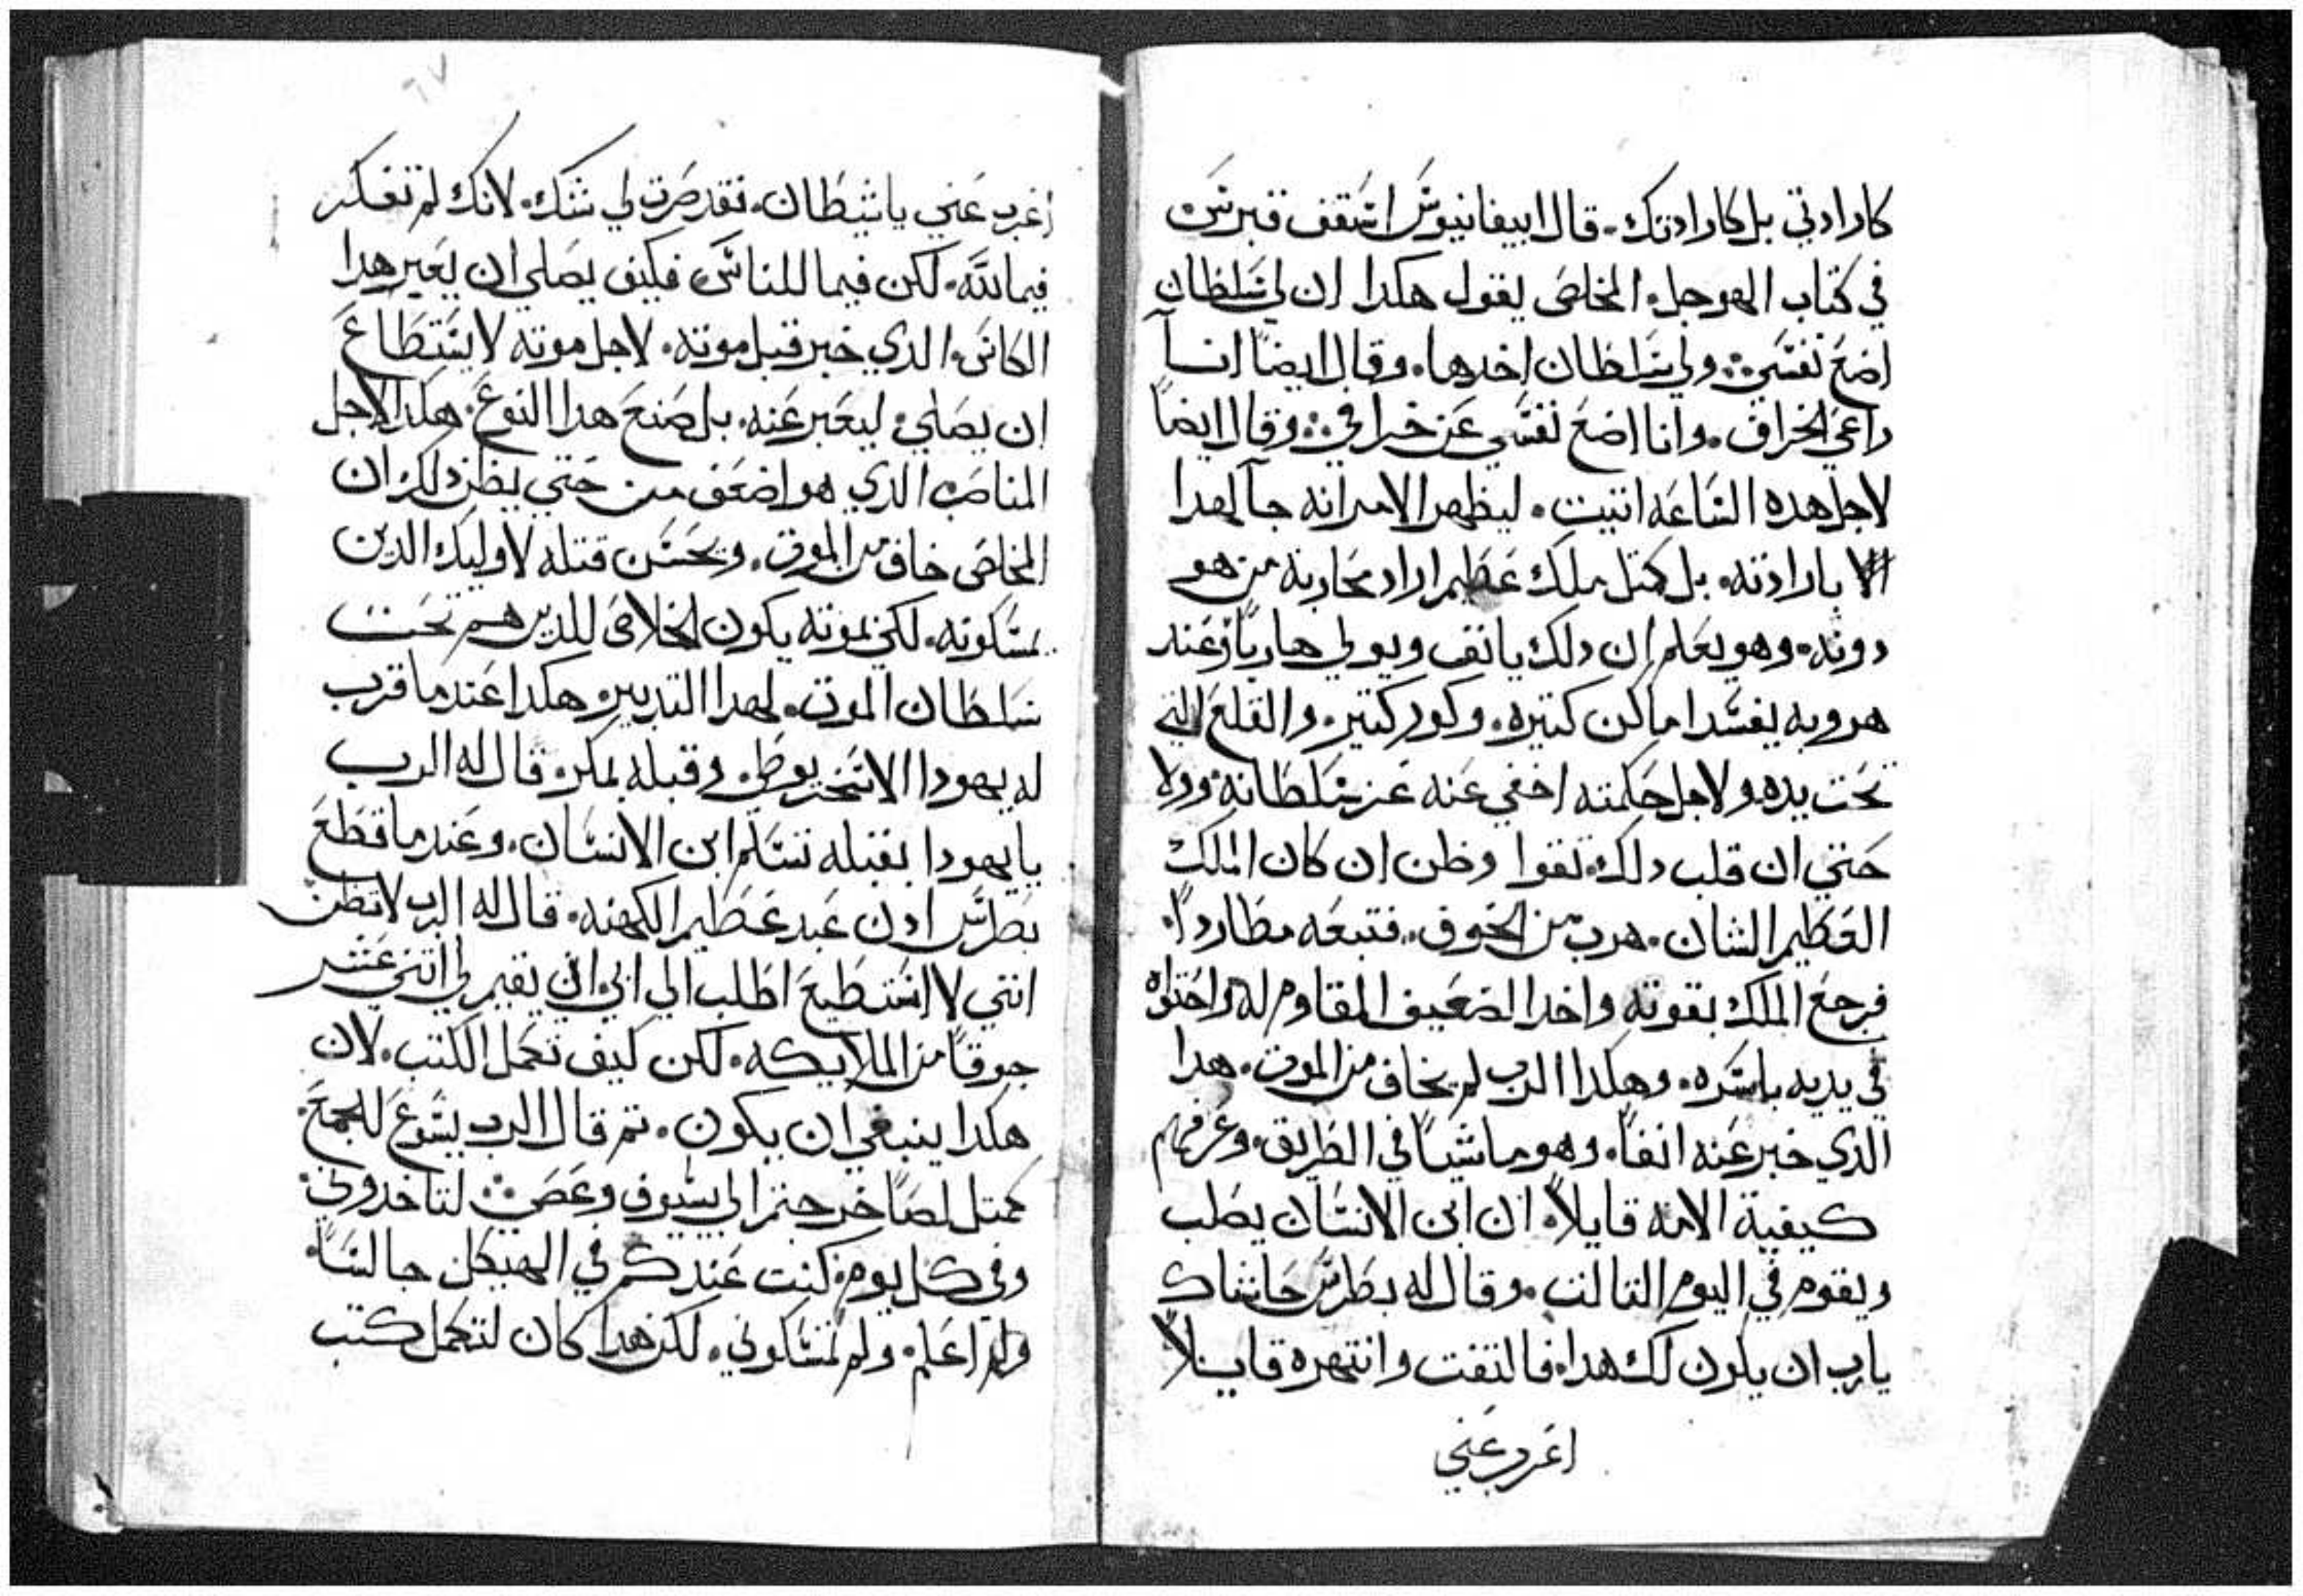 كارادتي بل كارادتك. قال ابيفانيوس اسقف قبرس
في كتاب الهوجل. المخلص يقول هكدا ان لي سلطان
اضع نفسي: ولي سلطان اخدها. وقال ايضا انا
راعي الخراف. وانا اضع نفسي عن خرافي: وقال ايضاً
لاجل هده الساعه اتيت. ليظهر الامر انه جا لهدا
الا بارادته. بل كمتل ملك عظيم اراد محاربة من هو
دونه. وهو يعلم ان دلك يانف ويولي هارباً وعند
هروبه يفسد اماكن كتيره. وكور كتير. والقلع التي
تحت يده ولاجل حكمته اخفي عنه عز سلطانه وولا
حتي ان قلب دلك تقوا وظن ان كان الملك
العظيم الشان. هرب من الخوف. فتبعه مطارداً.
فرجع الملك بقوته واخد الضعيف المقاوم له واحتواه
في يديه باسره. وهكدا الرب لم يخاف من الموت. هدا
الدي خبر عنه انفاً. وهو ماشياً في الطريق. وعرفهم
كيفية الامه قايلاً. ان ابن الانسان يصلب
ويقوم في اليوم التالت. وقال له بطرس حاشاك
يارب ان يكون لك هدا. فالتفت وانتهره قايلاً
اغرب عني
٦٧
اغرب عني ياشيطان. فقد صرت لي شك. لانك لم تفكر
فيما لله. لكن فيما للناس فكيف يصلي ان يعبر هدا
الكاس. الدي خبر قبل موته. لاجل موته لا يستطاع
ان يصلي. ليعبر عنه. بل صنع هدا النوع. هكدا لاجل
المناصب الدي هو اضعف من حتي يظن دلك ان
المخلص خاف من الموت. ويحسن قتله لاوليك الدين
يمسكونه. لكن بموته يكون الخلاص للدين هم تحت
سلطان الموت. لهدا التدبير. هكدا عند ما قرب
له يهودا الاسخريوطي وقبله بمكر. قال له الرب
يا يهودا بقبله تسلم ابن الانسان. وعند ما قطع
بطرس ادن عبد عظيم الكهنه. قال له الرب لا تظن
انني لا استطيع اطلب الي ابي. ان يقيم لي اتني عشر
جوقاً من الملايكه. لكن كيف تكمل الكتب. لان
هكدا ينبغي ان يكون. تم قال الرب يسوع للجمع.
كمتل لصاً خرجتم الي بسيوف وعصي: لتاخدوني.
وفي كل يوم. كنت عندكم في الهيكل جالساً.
ولم اعلم. ولم تمسكوني. لكن هدا كان لتكمل كتب